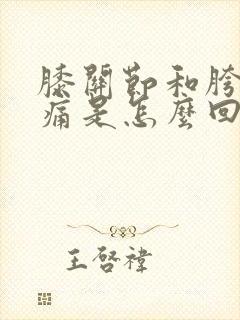 膝關節和胯
痛是怎麼回
王啓禕